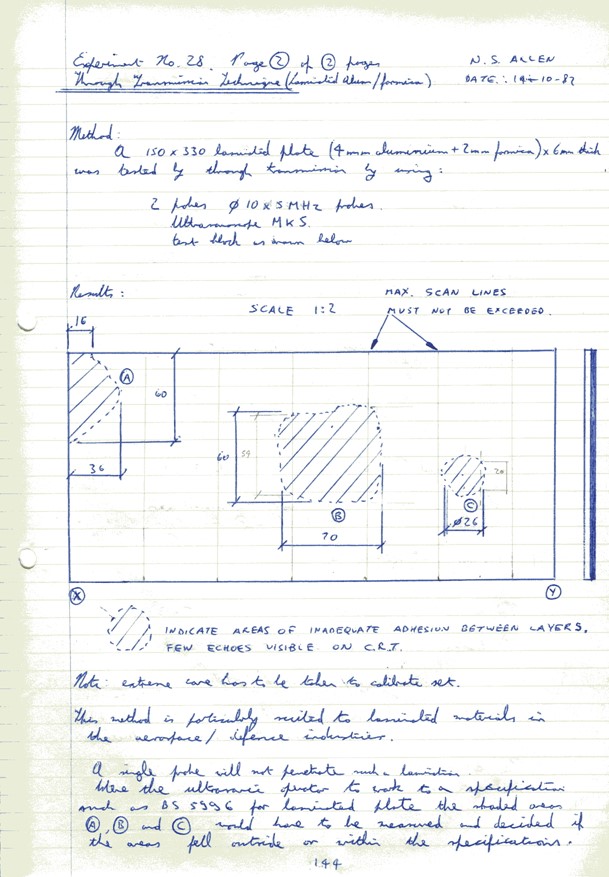 Experiment No. 28. Page ② of ② pages
N. S. ALLEN
Through Transmission Technique (Laminated Alum/formica)
DATE: 19-10-82
Method:
A 150 x 330 laminated plate (4mm alumenium + 2mm formica) x 6mm thick
was tested by through transmission by using:
2 probes ø 10 x 5 MHz probes.
Ultrasonoscope MKS.
test block as shown below
Results:
SCALE 1:2
MAX. SCAN LINES
MUST NOT BE EXCEEDED.
16
A
60
36
60
59
B
70
20
C
ø26
X
Y
INDICATE AREAS OF INADEQUATE ADHESION BETWEEN LAYERS,
FEW ECHOES VISIBLE ON C.R.T.
Note: extreme care has to be taken to calibrate set.
This method is particularly suited to laminated materials in
the aerospace / defence industries.
A single probe will not penetrate such a lamination.
Were the ultrasonic operator to work to a specification
such as BS 5996 for laminated plate the shaded areas
Ⓐ, Ⓑ and Ⓒ would have to be measured and decided if
the areas fell outside or within the specifications.
144